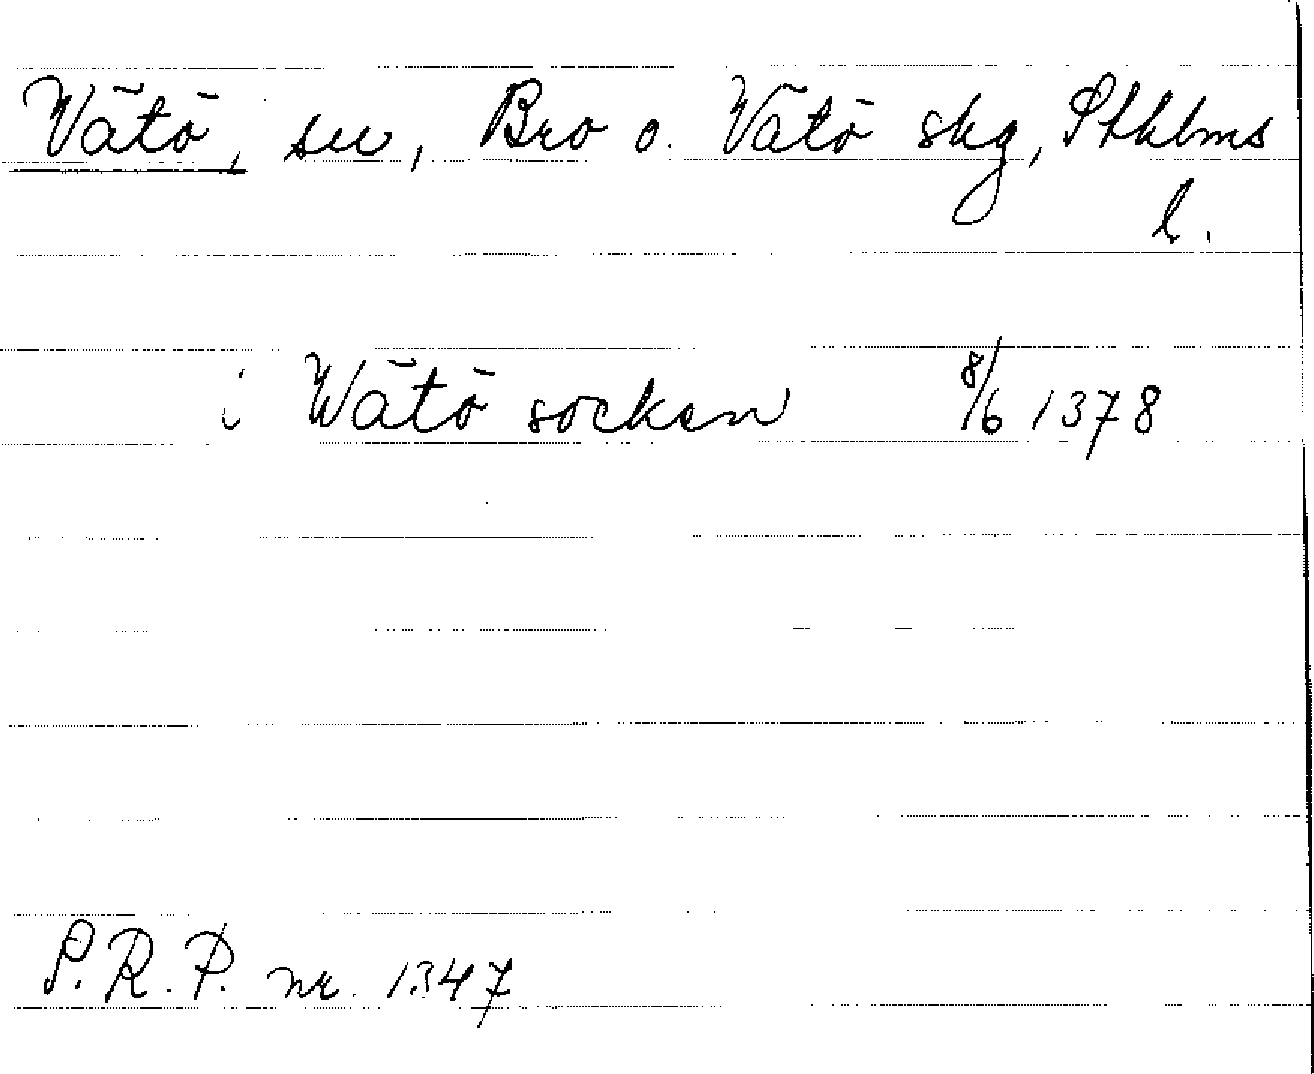 Vätö, sn, Bro o. Vätö skg, Sthlms
l.
i Wätö socken 8/6 1378
S.R.P. nr. 1347